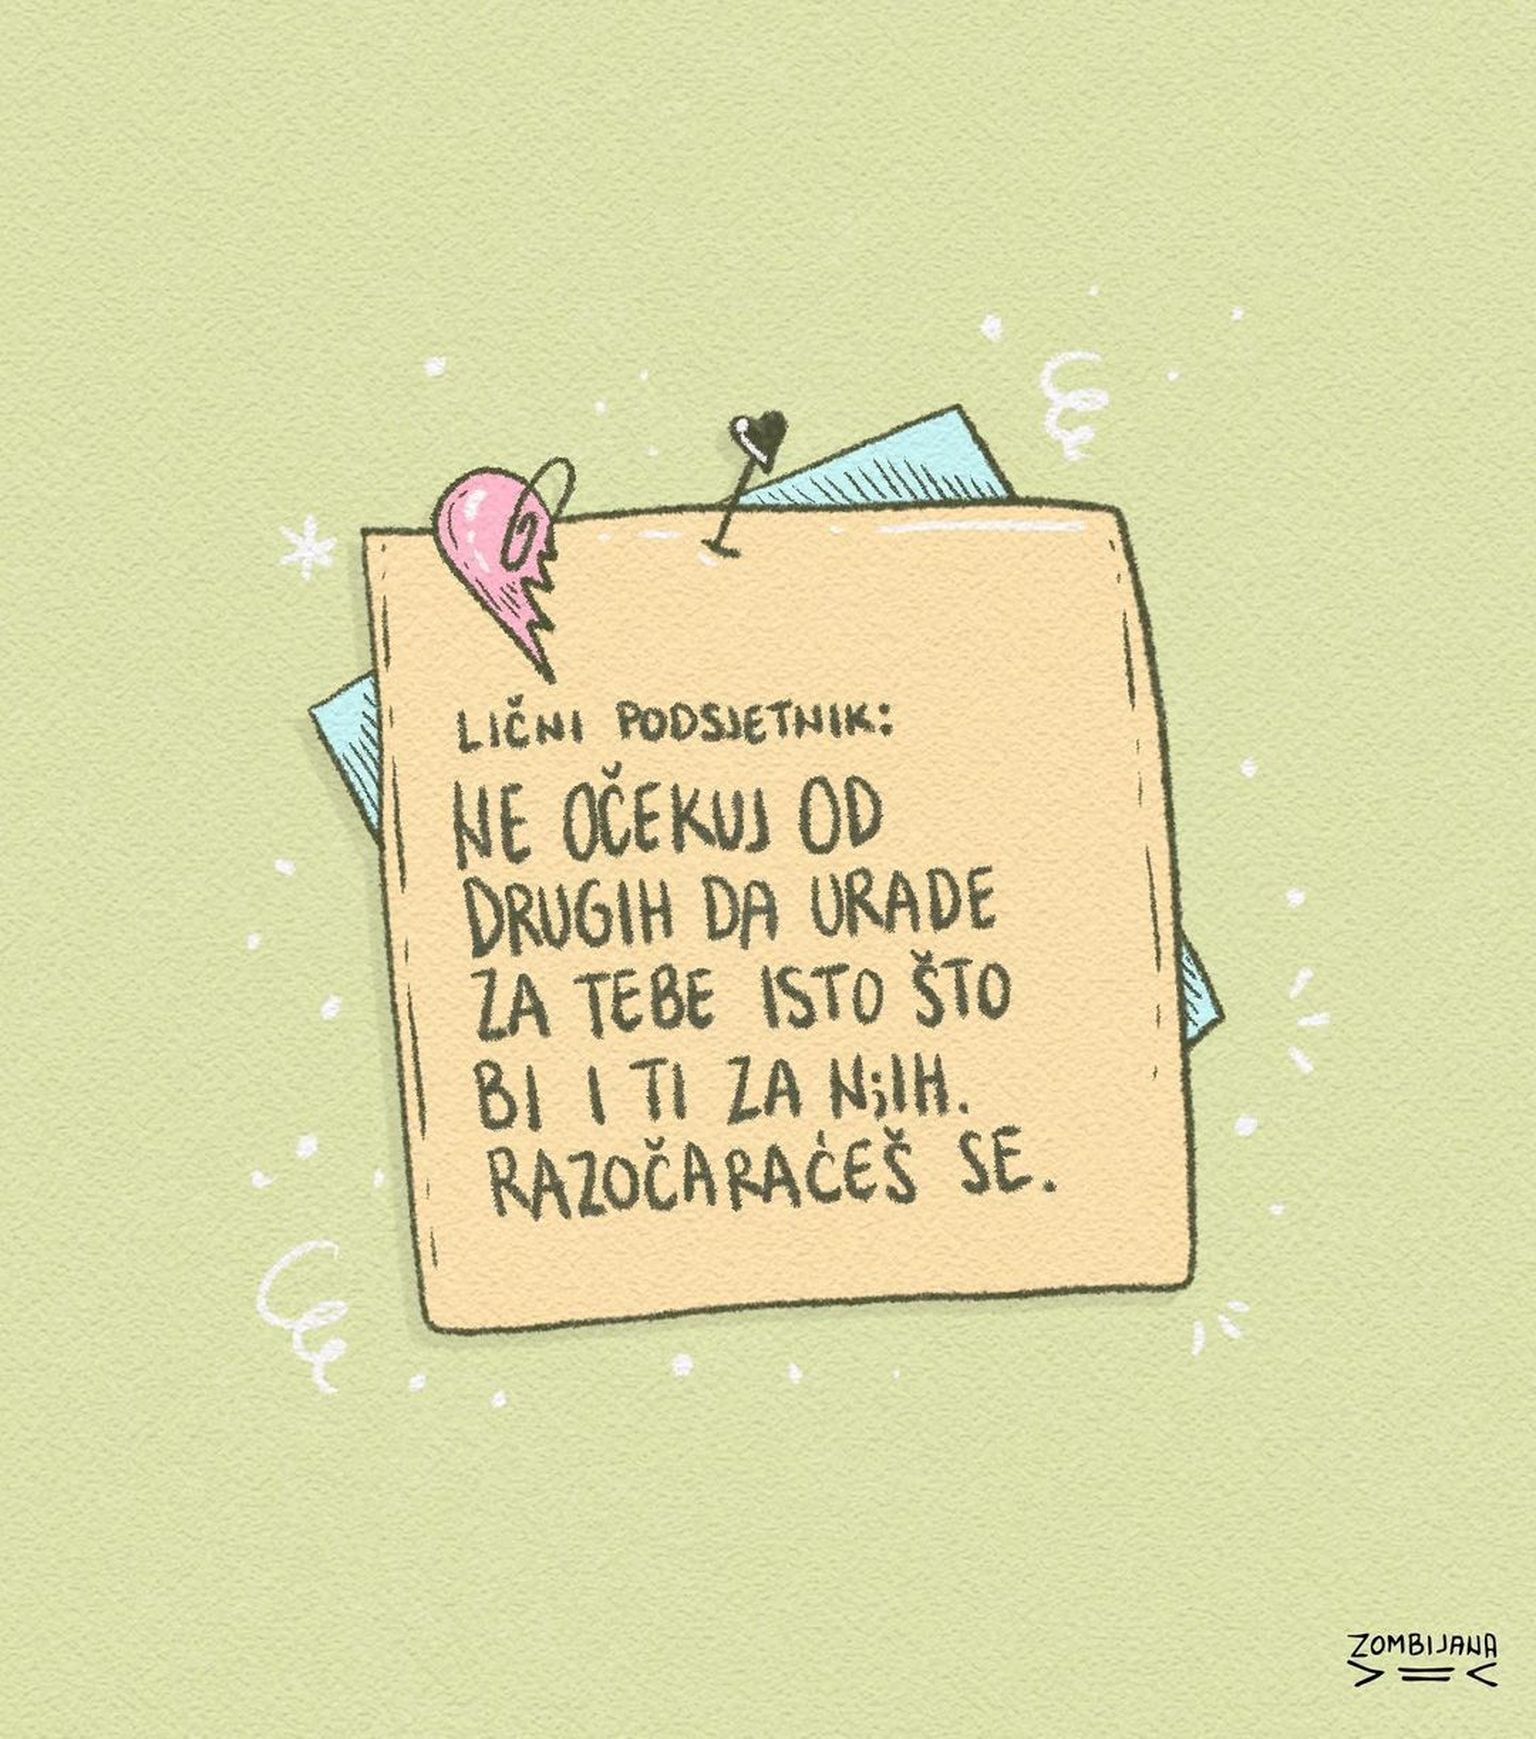 LIČNI PODSJETNIK:
NE OČEKUJ OD
DRUGIH DA URADE
ZA TEBE ISTO ŠTO
BI I TI ZA NjIH.
RAZOČARAĆEŠ SE.
ZOMBIJANA